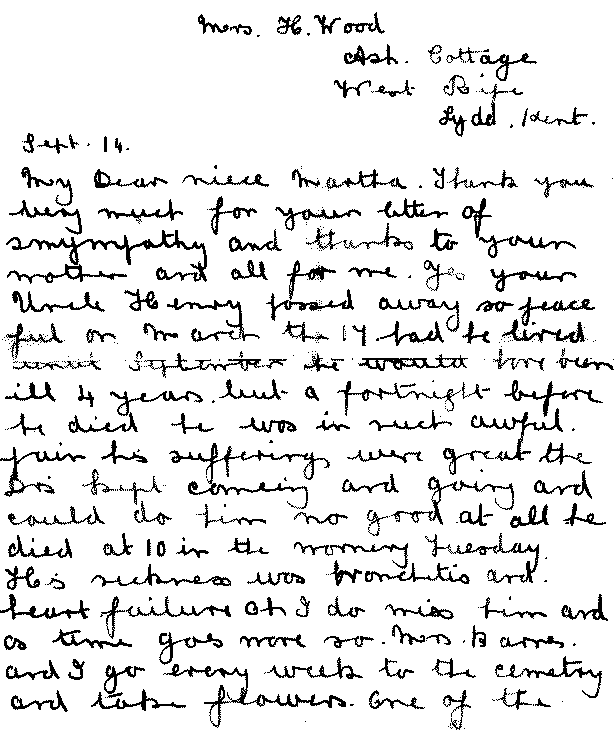 Mrs. H. Wood
Ash. Cottage
West Ripe
Lydd. Kent.
Sept. 14.
My Dear niece Martha. Thank you
very much for your letter of
smympathy and thanks to your
mother and all for me. Yes your
Uncle Henry passed away so peace
ful on March the 17 had he lived
until September he would have been
ill 4 years. but a fortnight before
he died he was in such awful.
pain his sufferings were great the
Drs kept comeing and going and
could do him no good at all he
died at 10 in the morning Tuesday.
His sickness was bronchitis and.
heart failure Oh I do miss him and
as time goes more so. Mrs. Barnes.
and I go every week to the cemetry
and take flowers. One of the